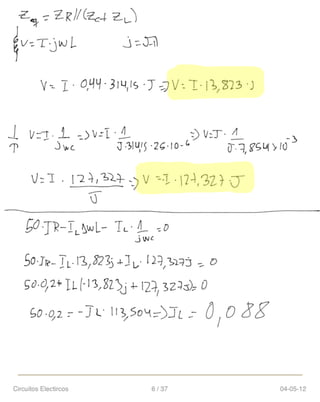 Zeq = ZR//(Zc+ ZL)
V= I·jwL j=√-1
V= I · 0,44·314,15·J => V= I·13,823·J
V=I·1/jwc => V=I·1/J·314,15·26·10-6 => V=J·1/J·7,854×10-3
V=I · 127,327/J => V=-I·127,327 J
50·JR-ILjwL- IL·1/jwc=0
50·JR-IL·13,823j+IL·127,327j = 0
50·0,2+IL(-13,823j+127,327j)=0
50·0,2 = -JL·113,504=>JL = 0,088
Circuitos Electircos 6 / 37 04-05-12